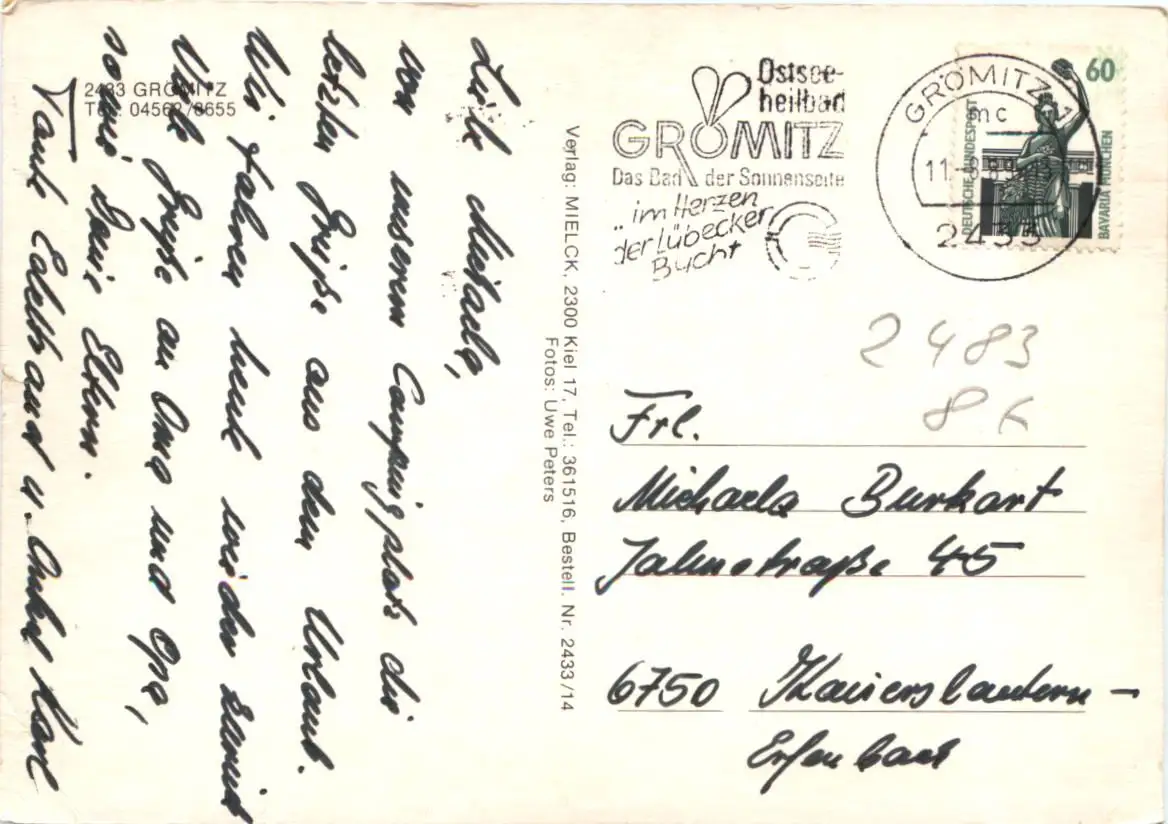 Liebe Michaela,
von unserem Campingplatz die
letzten Grüße aus dem Urlaub.
Wir fahren heute wieder zurück
Viele Grüße an Oma und Opa,
sowie Deine Eltern.
Tante Edelth and u. Onkel Karl
2433 GRÖMITZ
Tel. 04562/8655
Verlag: MIELCK, 2300 Kiel 17, Tel.: 361516, Bestell. Nr. 2433/14
Fotos: Uwe Peters
Ostsee-
heilbad
GRÖMITZ
Das Bad der Sonnenseite
"im Herzen
der Lübecker
Bucht
GRÖMITZ 1
mc
11.-8.
2433
60
DEUTSCHE BUNDESPOST
BAVARIA MÜNCHEN
2483
86
Frl.
Michaela Burkart
Jahnstraße 45
6750 Kaiserslautern-
Erfenbach